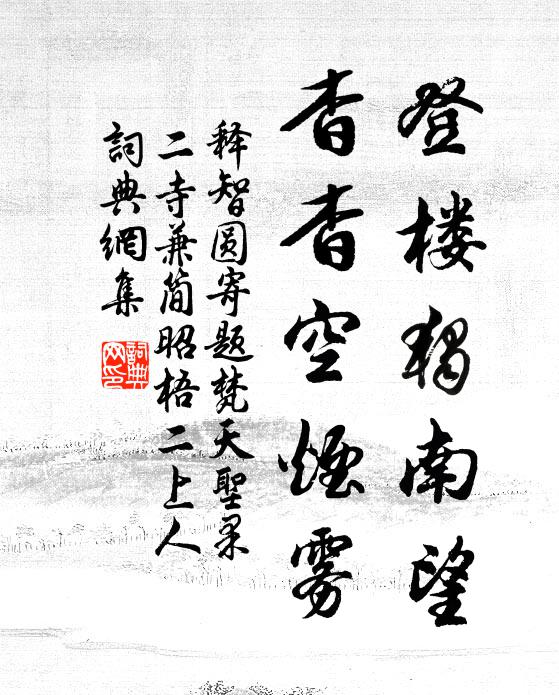 登楼独南望
杳杳空烟雾
释智圆寄题梵天聖果
二寺兼简昭梧二上人
詞典網集
詞典
网印